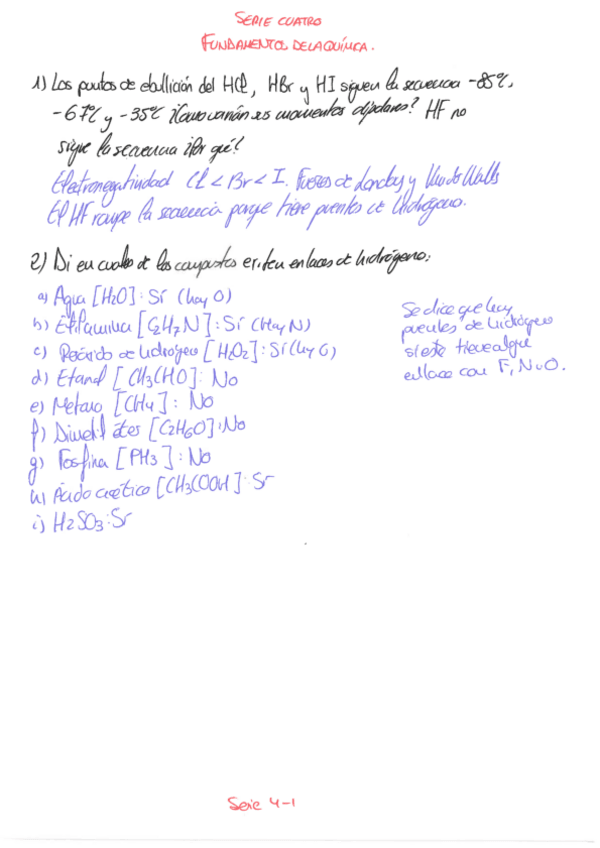 SERIE CUATRO
FUNDAMENTOS DE LA QUÍMICA.
1) Los puntos de ebullición del HCl, HBr y HI siguen la secuencia -85ºC,
-67ºC y -35ºC ¿Como varían sus momentos dipolares? HF no
sigue la secuencia ¿Por qué?
Electronegatividad Cl < Br < I. Fuerzas de London y Van der Walls
El HF rompe la secuencia porque tiene puentes de hidrógeno.
2) Di en cuales de los compuestos existen enlaces de hidrógeno:
a) Agua [H2O]: Sí (hay O)
b) Etilamina [C2H7N]: Sí (Hay N)
c) Peróxido de hidrógeno [H2O2]: Sí (hay O)
d) Etanal [CH3CHO]: No
e) Metano [CH4]: No
f) Dimetil éter [C2H6O]: No
g) Fosfina [PH3]: No
h) Ácido acético [CH3COOH]: Sí
i) H2SO3: Sí
Se dice que hay
puentes de hidrógeno
si este tiene algún
enlace con F, N u O.
Serie 4-1